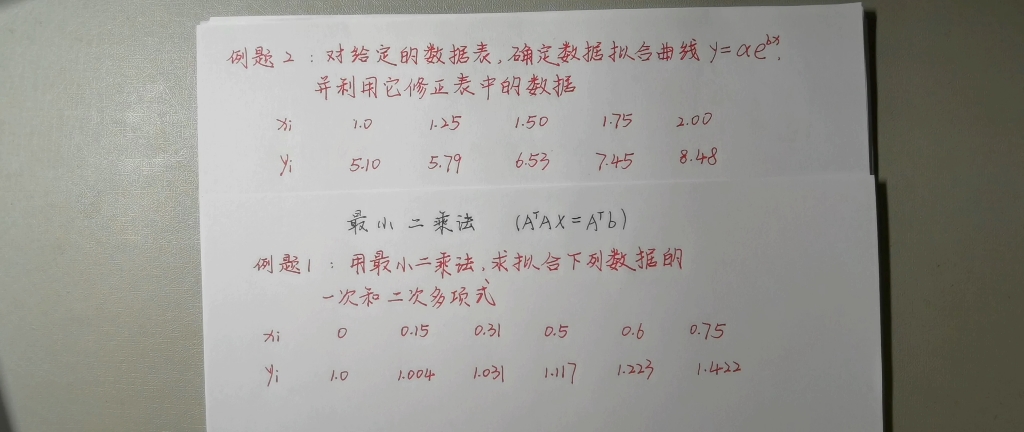 例题2：对给定的数据表，确定数据拟合曲线 y=αe^{bx}，
并利用它修正表中的数据
xi 1.0 1.25 1.50 1.75 2.00
yi 5.10 5.79 6.53 7.45 8.48
最小二乘法 (AᵀAX=Aᵀb)
例题1：用最小二乘法，求拟合下列数据的
一次和二次多项式
xi 0 0.15 0.31 0.5 0.6 0.75
yi 1.0 1.004 1.031 1.117 1.223 1.422